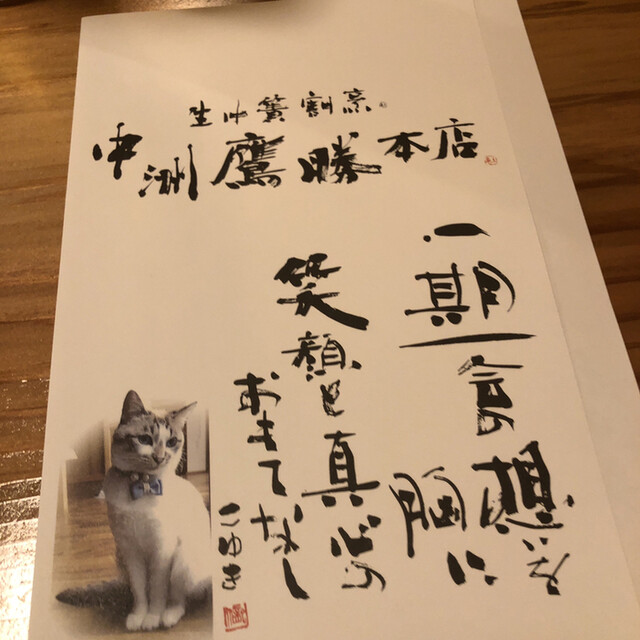 生け簀割烹
中洲鷹勝本店
一期一會想いを
胸に
笑顔と真心の
おもてなし
こゆき